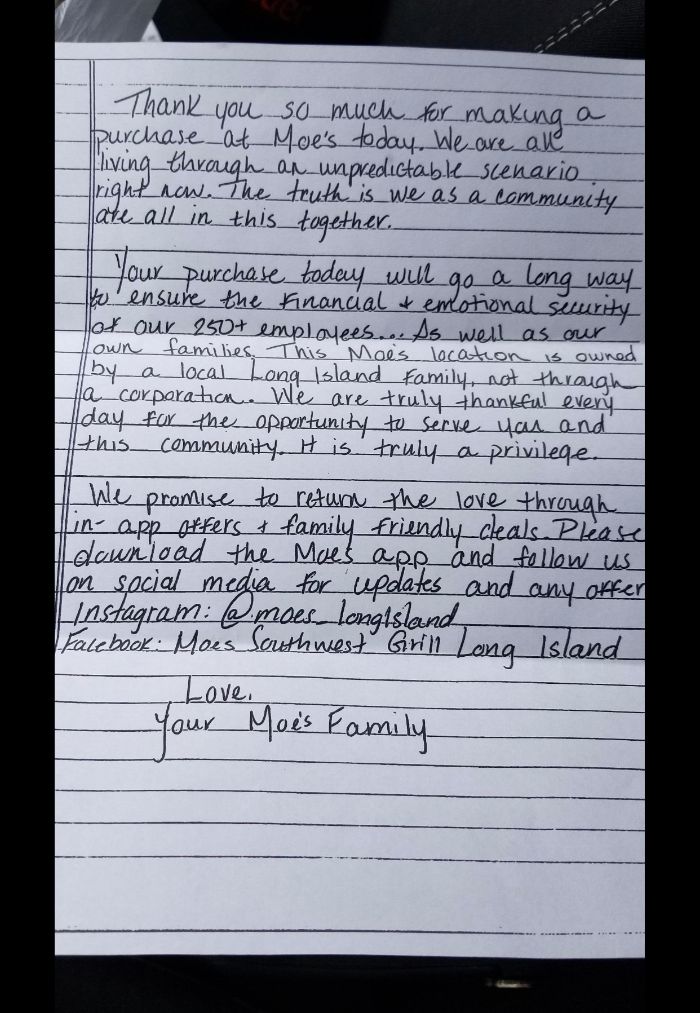 Thank you so much for making a
purchase at Moe's today. We are all
living through an unpredictable scenario
right now. The truth is we as a community
are all in this together.
Your purchase today will go a long way
to ensure the financial & emotional security
of our 250+ employees... As well as our
own families. This Moe's location is owned
by a local Long Island Family, not through
a corporation. We are truly thankful every
day for the opportunity to serve you and
this community. It is truly a privilege.
We promise to return the love through
in-app offers & family friendly deals. Please
download the Moes app and follow us
on social media for updates and any offer
Instagram: @moes_longisland
Facebook: Moes Southwest Grill Long Island
Love,
Your Moe's Family